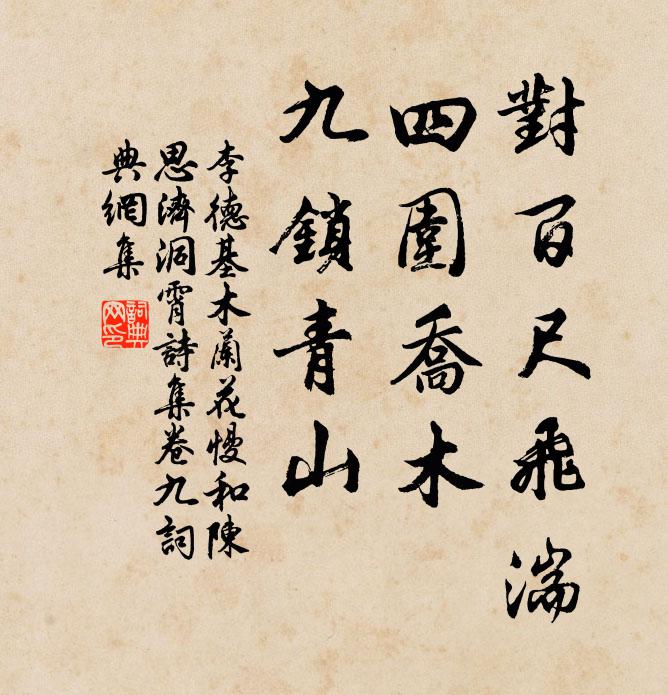 對百尺飛湍
四圍喬木
九鎖青山
李德基木蘭花慢和陳
思濟洞霄詩集卷九詞
典網集
詞典
网印